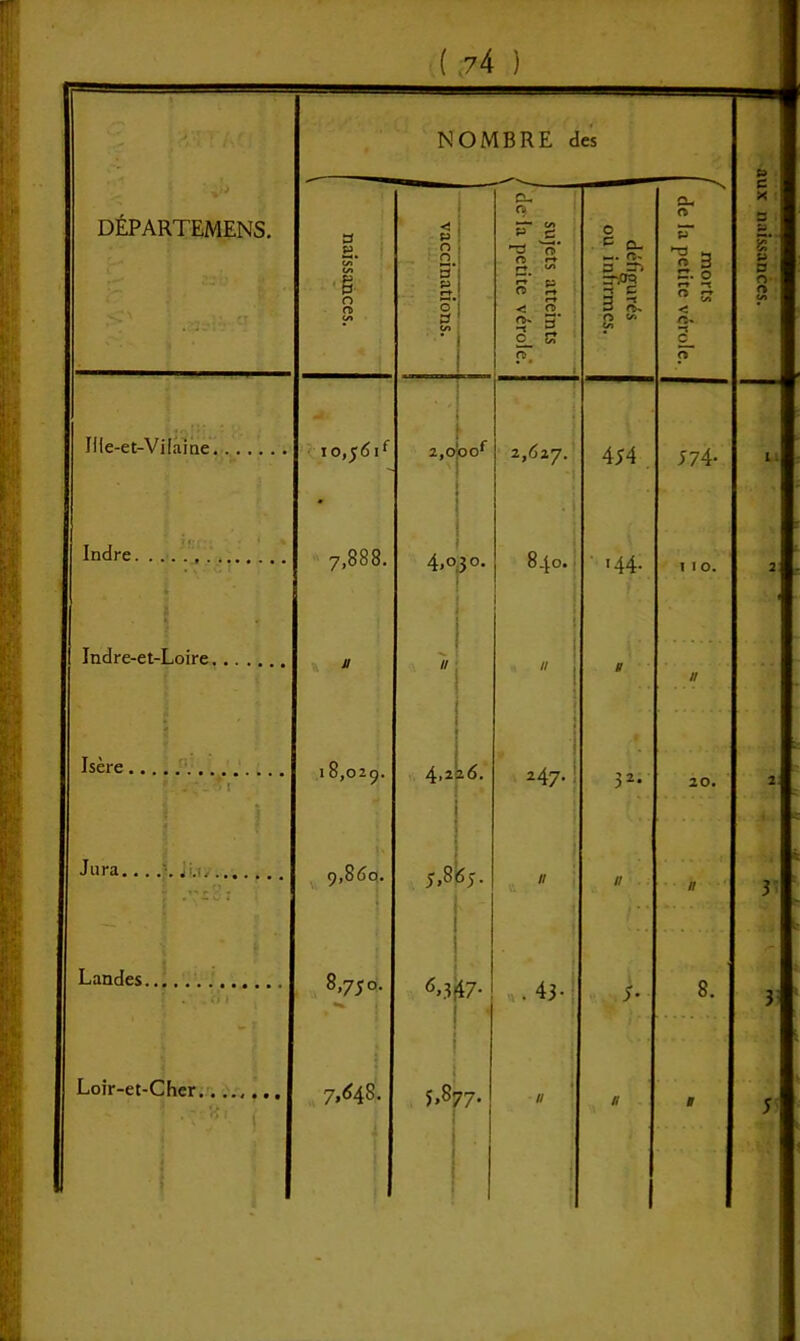 ( 74 )
NOMBRE des
DÉPARTEMENS.
naissances.
vaccinations.
sujets atteints
de la petite vérole.
défigurés
ou infirmes.
morts
de la petite vérole.
aux naissances.
Ille-et-Vilaine........ 10,561f 2,000f 2,627. 454 574.
Indre.............. 7,888. 4,030. 840. 144. 110. 2
Indre-et-Loire........ // // // // //
Isère.............. 18,029. 4,226. 247. 32. 20. 2
Jura.............. 9,860. 5,865. // // // 3
Landes.............. 8,750. 6,347. 43. 5. 8. 3
Loir-et-Cher........ 7,648. 5,877. // // // 5